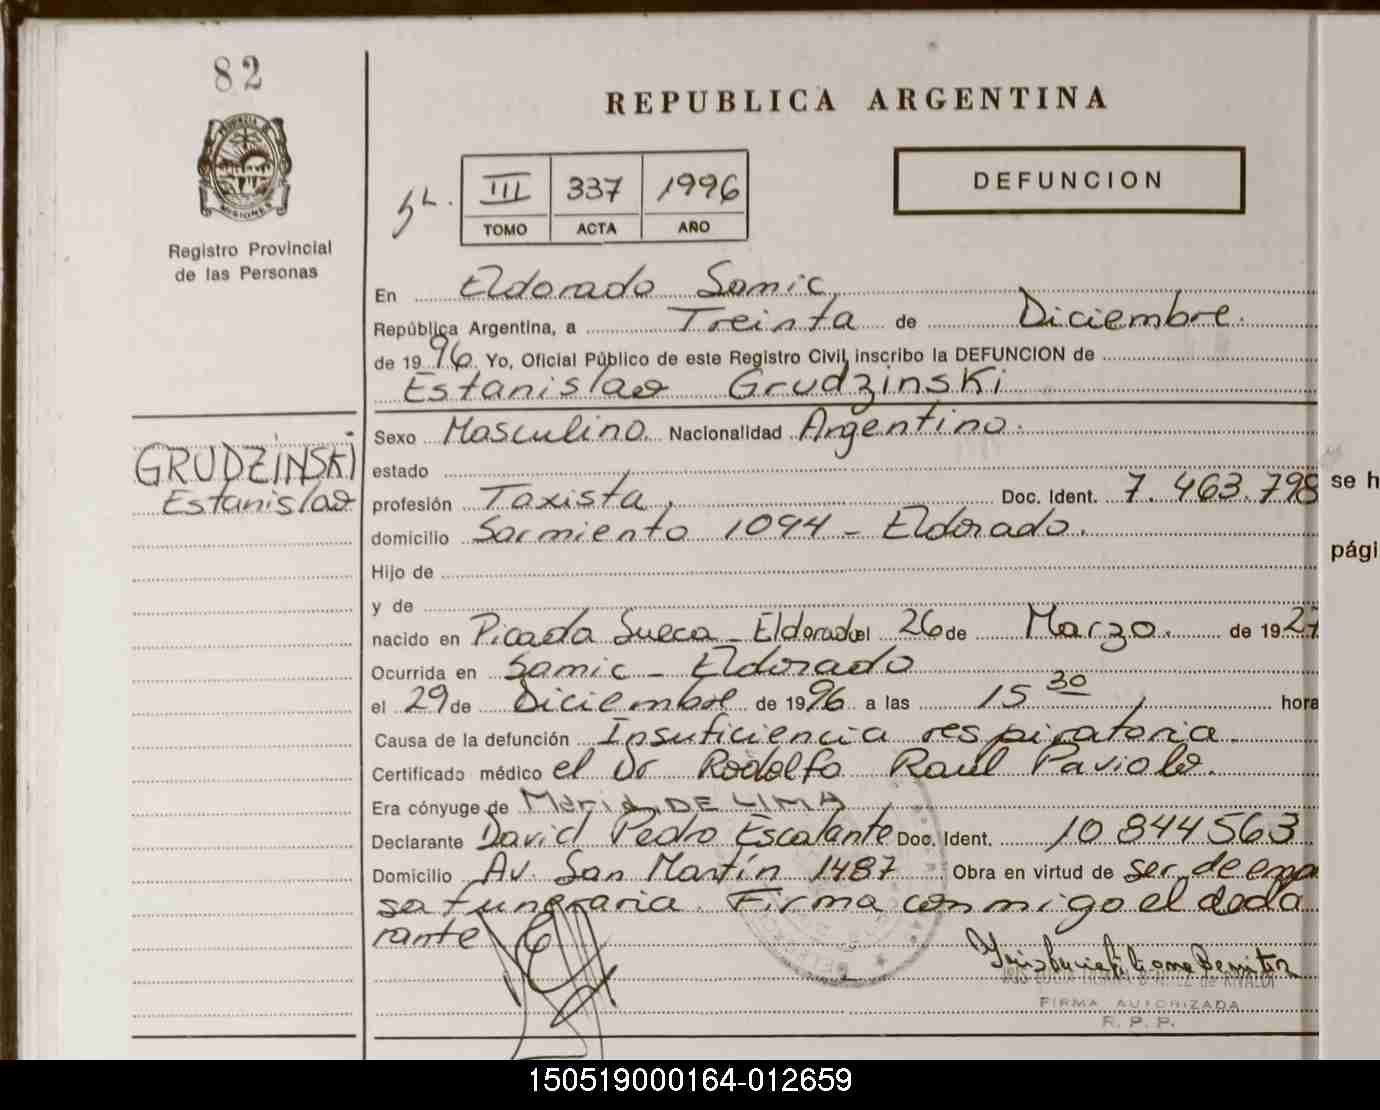 82
REPUBLICA ARGENTINA
DEFUNCION
III 337 1996
TOMO ACTA AÑO
PROVINCIA
MISIONES
Registro Provincial
de las Personas
En Eldorado Samic
República Argentina, a Treinta de Diciembre.
de 1996. Yo, Oficial Público de este Registro Civil, inscribo la DEFUNCION de
Estanislao Grudzinski
GRUDZINSKI
Estanislao
Sexo Masculino Nacionalidad Argentino.
estado
profesión Taxista. Doc. Ident. 7.463.798
domicilio Sarmiento 1094 - Eldorado.
Hijo de
y de
nacido en Picada Sueca - Eldorado el 26 de Marzo. de 1927
Ocurrida en Samic - Eldorado
el 29 de Diciembre de 1996 a las 15 30 hora
Causa de la defunción Insuficiencia respiratoria.
Certificado médico el Dr Rodolfo Raul Paviolo.
Era cónyuge de Maria DE LIMA
Declarante David Pedro Escalante Doc. Ident. 10 844563
Domicilio Av. San Martín 1487 Obra en virtud de ser de empre
sa funeraria. Firma conmigo el decla
rante
FIRMA AUTORIZADA
R. P. P.
se h
pági
150519000164-012659